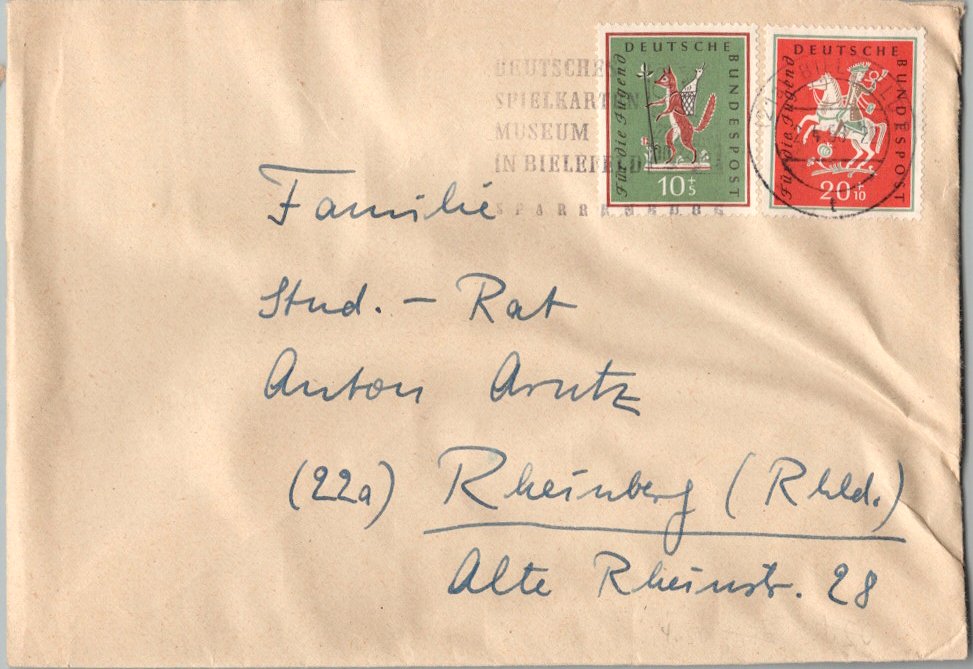 DEUTSCHES
SPIELKARTEN
MUSEUM
IN BIELEFELD
SPARRENBURG
DEUTSCHE
BUNDESPOST
Für die Jugend
10+5
DEUTSCHE
BUNDESPOST
Für die Jugend
20+10
BIELEFELD
Familie
Stud. - Rat
Anton Arntz
(22a) Rheinberg (Rhld.)
Alte Rheinstr. 28